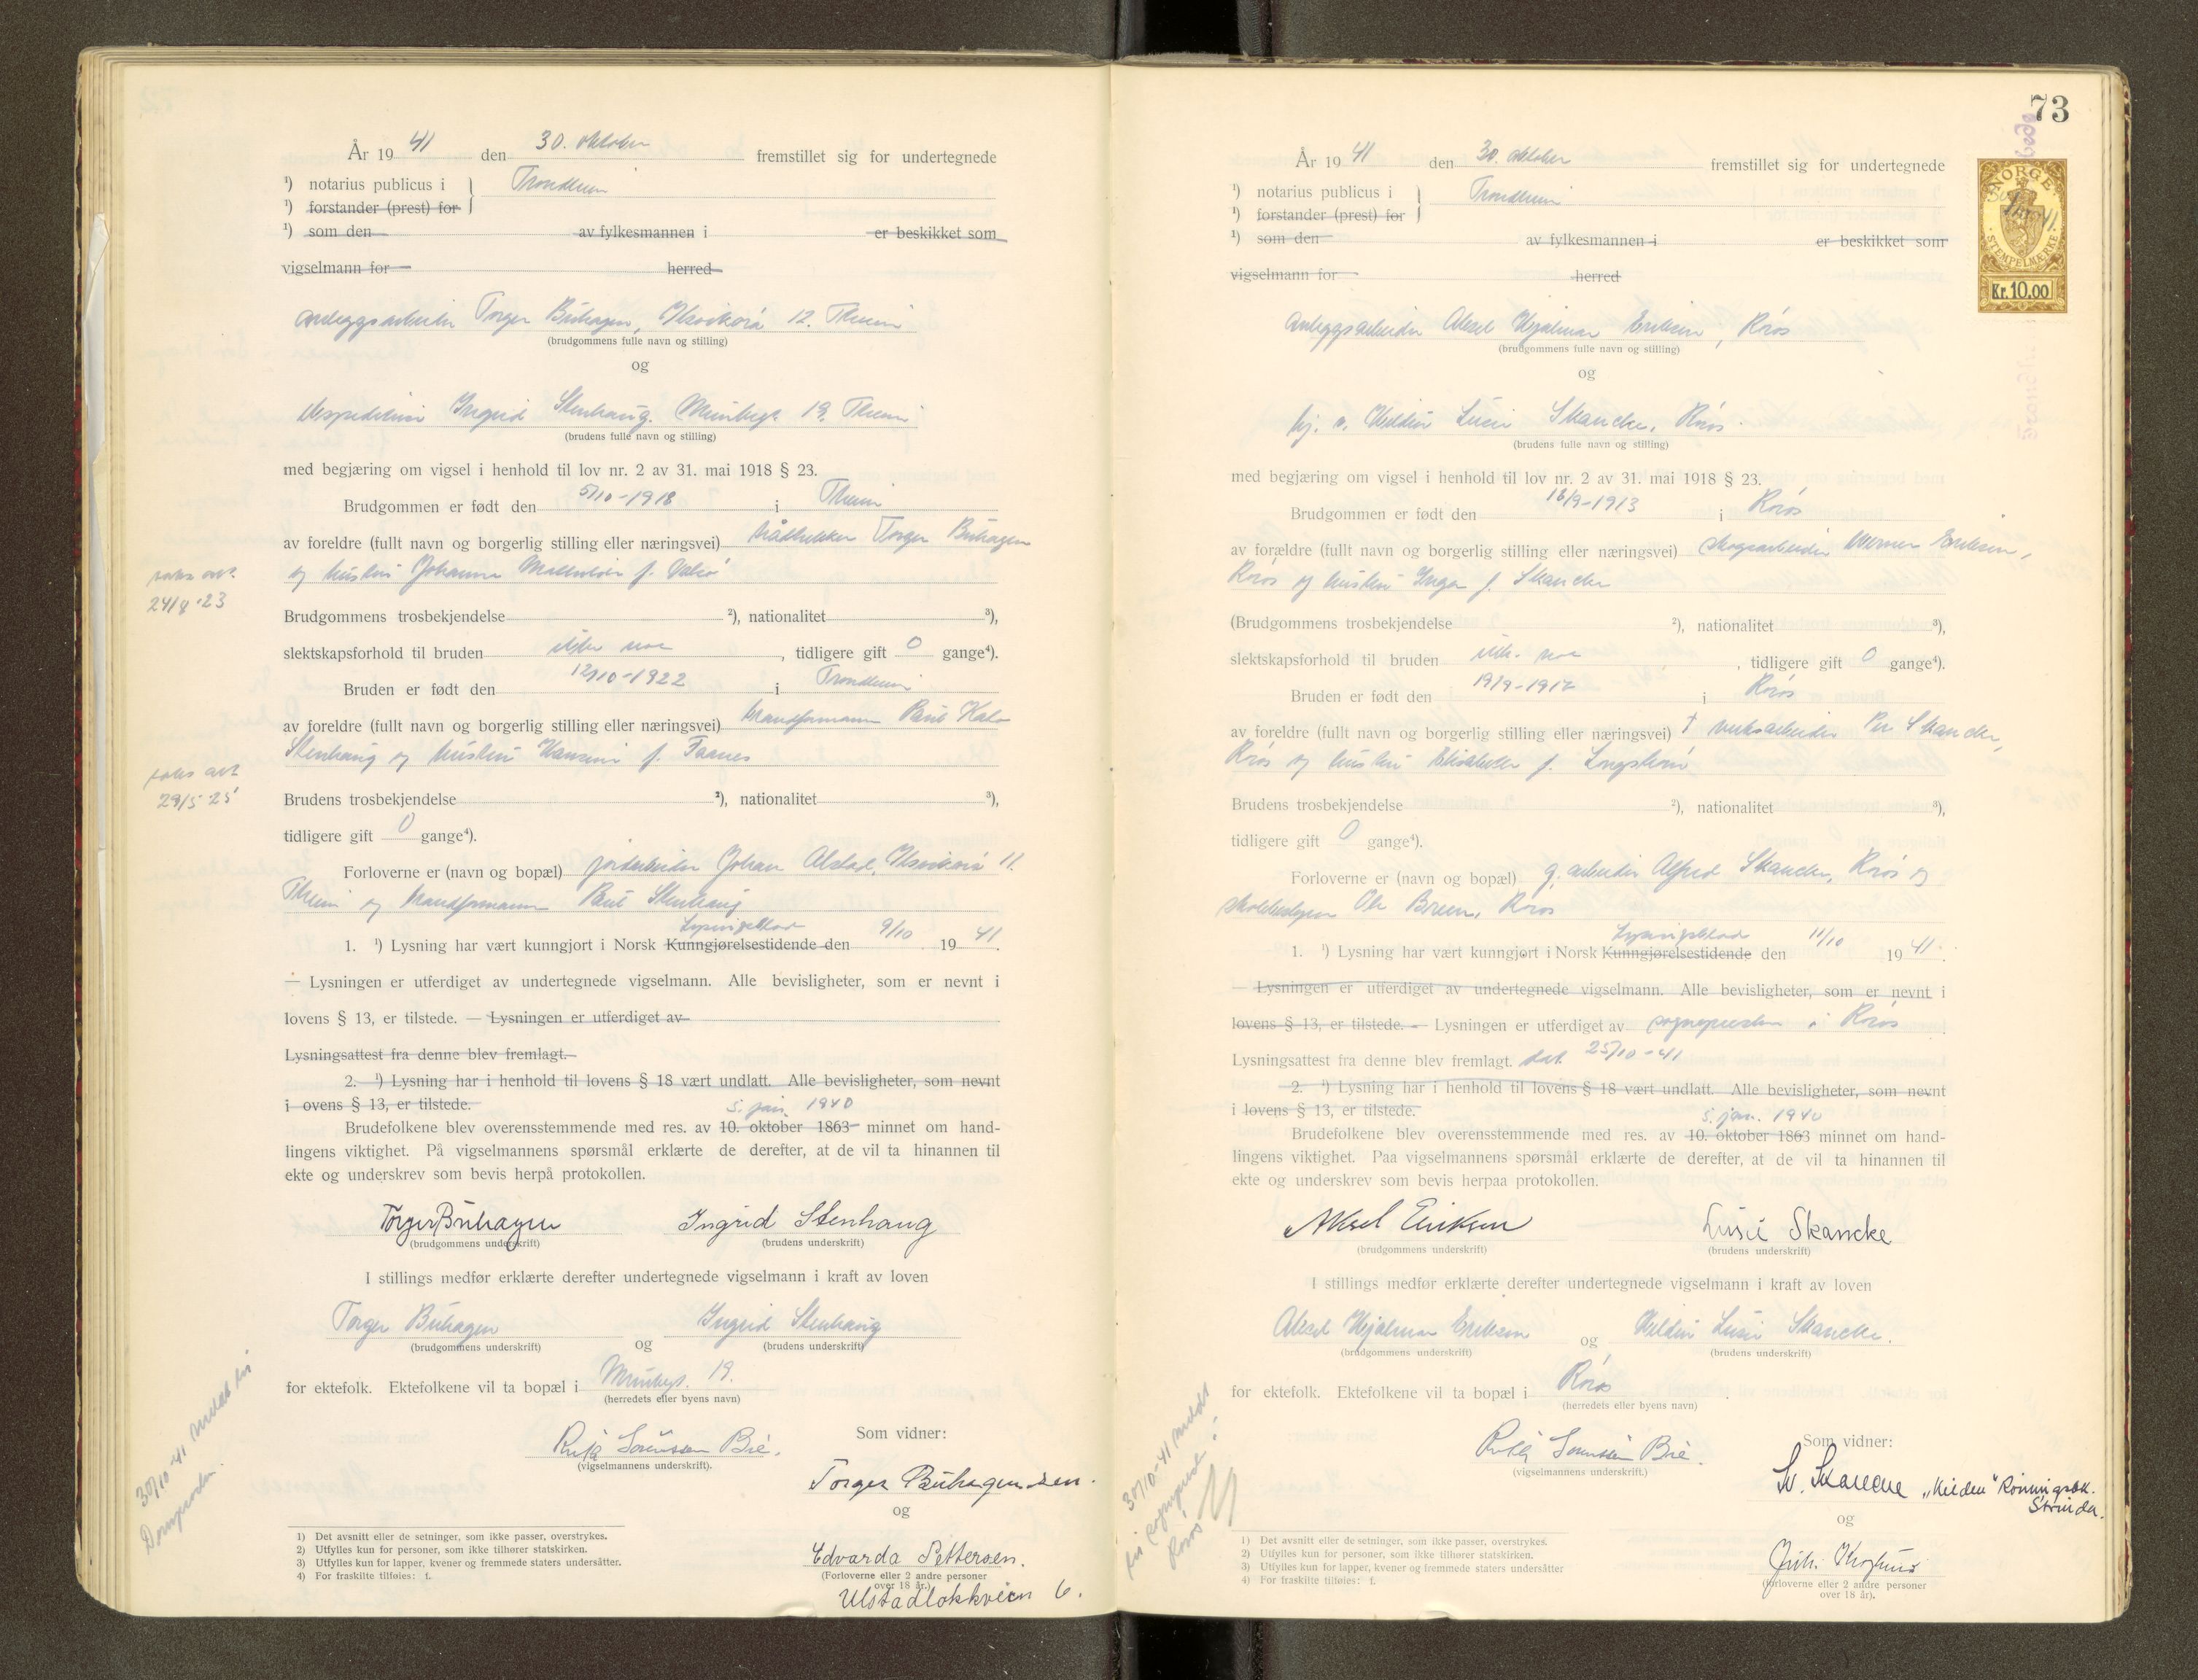 År 19 41 den 30. oktober fremstillet sig for undertegnede
¹) notarius publicus i Trondheim
¹) forstander (prest) for
¹) som den av fylkesmannen i er beskikket som
vigselmann for herred
anleggsarbeider Torger Buhagen, Ilsvikøra 12. Theim
(brudgommens fulle navn og stilling)
og
Ingrid Stenhaug. 19. Theim
(brudens fulle navn og stilling)
med begjæring om vigsel i henhold til lov nr. 2 av 31. mai 1918 § 23.
Brudgommen er født den 5/10-1918 i Theim
av foreldre (fullt navn og borgerlig stilling eller næringsvei) Torger Buhagen
og hustru Johanna f. Valsø
døbs att.
24/4 23
Brudgommens trosbekjendelse ²), nationalitet ³),
slektskapsforhold til bruden ikke noe, tidligere gift 0 gange⁴).
Bruden er født den 12/10-1922 i Trondheim
av foreldre (fullt navn og borgerlig stilling eller næringsvei) brandformann Paul
Stenhaug og hustru Hansine f. Faanes
døbs att.
29/5 25
Brudens trosbekjendelse ²), nationalitet ³),
tidligere gift 0 gange⁴).
Forloverne er (navn og bopæl) jordarbeider Johan Alstad, Ilsvikøra 11.
Theim og brandformann Paul Stenhaug
Lysningsblad
1. ¹) Lysning har vært kunngjort i Norsk Kunngjørelsestidende den 9/10 19 41.
— Lysningen er utferdiget av undertegnede vigselmann. Alle bevisligheter, som er nevnt i
lovens § 13, er tilstede. — Lysningen er utferdiget av
Lysningsattest fra denne blev fremlagt.
2. ¹) Lysning har i henhold til lovens § 18 vært undlatt. Alle bevisligheter, som nevnt
i ovens § 13, er tilstede.
5. jan. 1940
Brudefolkene blev overensstemmende med res. av 10. oktober 1863 minnet om hand-
lingens viktighet. På vigselmannens spørsmål erklærte de derefter, at de vil ta hinannen til
ekte og underskrev som bevis herpå protokollen.
Torger Buhagen Ingrid Stenhaug
(brudgommens underskrift) (brudens underskrift)
I stillings medfør erklærte derefter undertegnede vigselmann i kraft av loven
Torger Buhagen og Ingrid Stenhaug
(brudgommens underskrift) (brudens underskrift)
for ektefolk. Ektefolkene vil ta bopæl i 19.
(herredets eller byens navn)
30/10-41 meldt til
Domprosten.
Som vidner:
Sørenssen Bie.
(vigselmannens underskrift).
Torger Buhagen sen.
og
Edvarda Pettersen.
(Forloverne eller 2 andre personer
over 18 år.)
Ulstadløkkveien 6.
1) Det avsnitt eller de setninger, som ikke passer, overstrykes.
2) Utfylles kun for personer, som ikke tilhører statskirken.
3) Utfylles kun for lapper, kvener og fremmede staters undersåtter.
4) For fraskilte tilføies: f.
73
NORGE
STEMPELMERKE
Kr. 10.00
År 19 41 den 30. oktober fremstillet sig for undertegnede
¹) notarius publicus i Trondheim
¹) forstander (prest) for
¹) som den av fylkesmannen i er beskikket som
vigselmann for herred
anleggsarbeider Aksel Hjalmar Eriksen, Røros
(brudgommens fulle navn og stilling)
og
hj. v. Hildur Lusie Skancke, Røros.
(brudens fulle navn og stilling)
med begjæring om vigsel i henhold til lov nr. 2 av 31. mai 1918 § 23.
Brudgommen er født den 16/9-1913 i Røros
av forældre (fullt navn og borgerlig stilling eller næringsvei) skogsarbeider Werner Eriksen,
Røros og hustru Inga f. Skancke
(Brudgommens trosbekjendelse ²), nationalitet ³),
slektskapsforhold til bruden ikke noe, tidligere gift 0 gange⁴).
Bruden er født den 19/9-1917 i Røros
av foreldre (fullt navn og borgerlig stilling eller næringsvei) † verksarbeider Per Skancke,
Røros og hustru Elisabeth f.
Brudens trosbekjendelse ²), nationalitet ³),
tidligere gift 0 gange⁴).
Forloverne er (navn og bopæl) g. arbeider Alfred Skancke, Røros og
Ole Breen, Røros
Lysningsblad
1. ¹) Lysning har vært kunngjort i Norsk Kunngjørelsestidende den 11/10 19 41.
— Lysningen er utferdiget av undertegnede vigselmann. Alle bevisligheter, som er nevnt i
lovens § 13, er tilstede. — Lysningen er utferdiget av sognepresten i Røros
Lysningsattest fra denne blev fremlagt. dat. 25/10-41
2. ¹) Lysning har i henhold til lovens § 18 vært undlatt. Alle bevisligheter, som nevnt
i lovens § 13, er tilstede.
5. jan. 1940
Brudefolkene blev overensstemmende med res. av 10. oktober 1863 minnet om hand-
lingens viktighet. Paa vigselmannens spørsmål erklærte de derefter, at de vil ta hinannen til
ekte og underskrev som bevis herpaa protokollen.
Aksel Eriksen Lusie Skancke
(brudgommens underskrift) (brudens underskrift)
I stillings medfør erklærte derefter undertegnede vigselmann i kraft av loven
Aksel Hjalmar Eriksen og Hildur Lusie Skancke.
(brudgommens underskrift) (brudens underskrift)
for ektefolk. Ektefolkene vil ta bopæl i Røros.
(herredets eller byens navn)
30/10-41 meldt
til sogneprest i
Røros
Som vidner:
Sørenssen Bie.
(vigselmannens underskrift.)
Skancke
Strinda.
og
(forloverne eller 2 andre personer
over 18 år).
1) Det avsnitt eller de setninger, som ikke passer, overstrykes.
2) Utfylles kun for personer, som ikke tilhører statskirken.
3) Utfylles kun for lapper, kvener og fremmede staters undersåtter
4) For fraskilte tilføies: f.